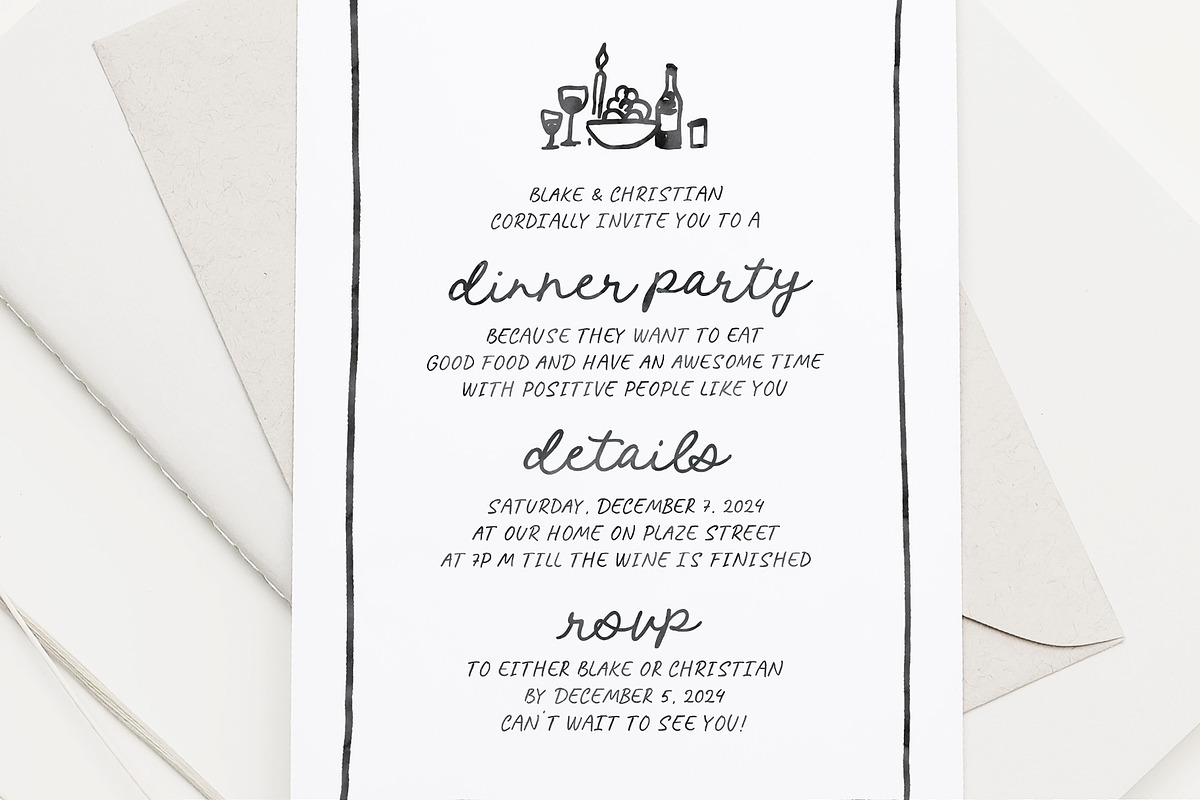 BLAKE & CHRISTIAN
CORDIALLY INVITE YOU TO A
dinner party
BECAUSE THEY WANT TO EAT
GOOD FOOD AND HAVE AN AWESOME TIME
WITH POSITIVE PEOPLE LIKE YOU
details
SATURDAY, DECEMBER 7, 2024
AT OUR HOME ON PLAZE STREET
AT 7P M TILL THE WINE IS FINISHED
rsvp
TO EITHER BLAKE OR CHRISTIAN
BY DECEMBER 5, 2024
CAN'T WAIT TO SEE YOU!